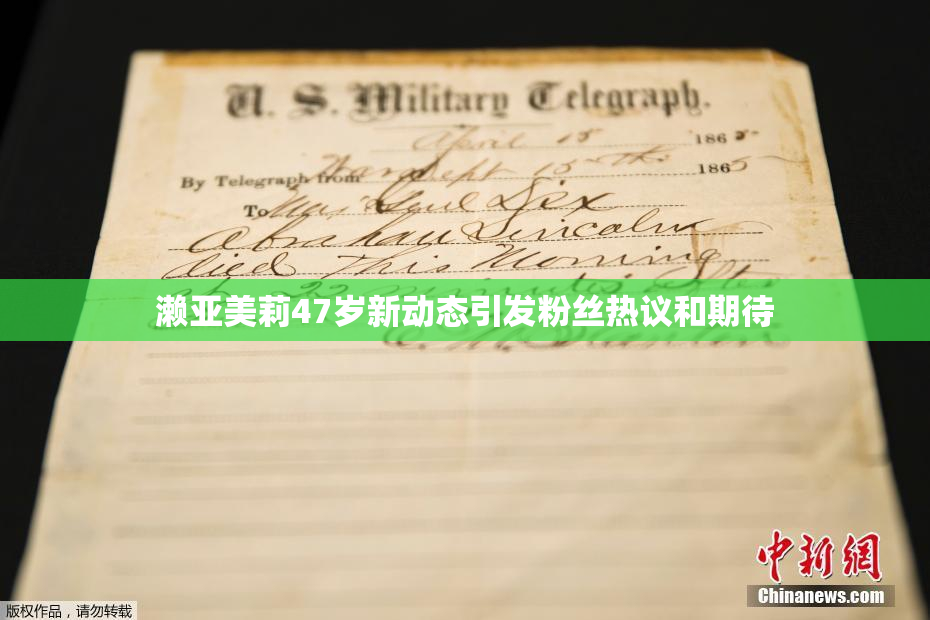 U. S. Military Telegraph.
April 15 1865
By Telegraph from War Dept 15th 1865
To Maj Genl Dix
Abraham Lincoln
died This Morning
at 22 minutes after
濑亚美莉47岁新动态引发粉丝热议和期待
E. M. Stanton
中新网
Chinanews.com
版权作品，请勿转载